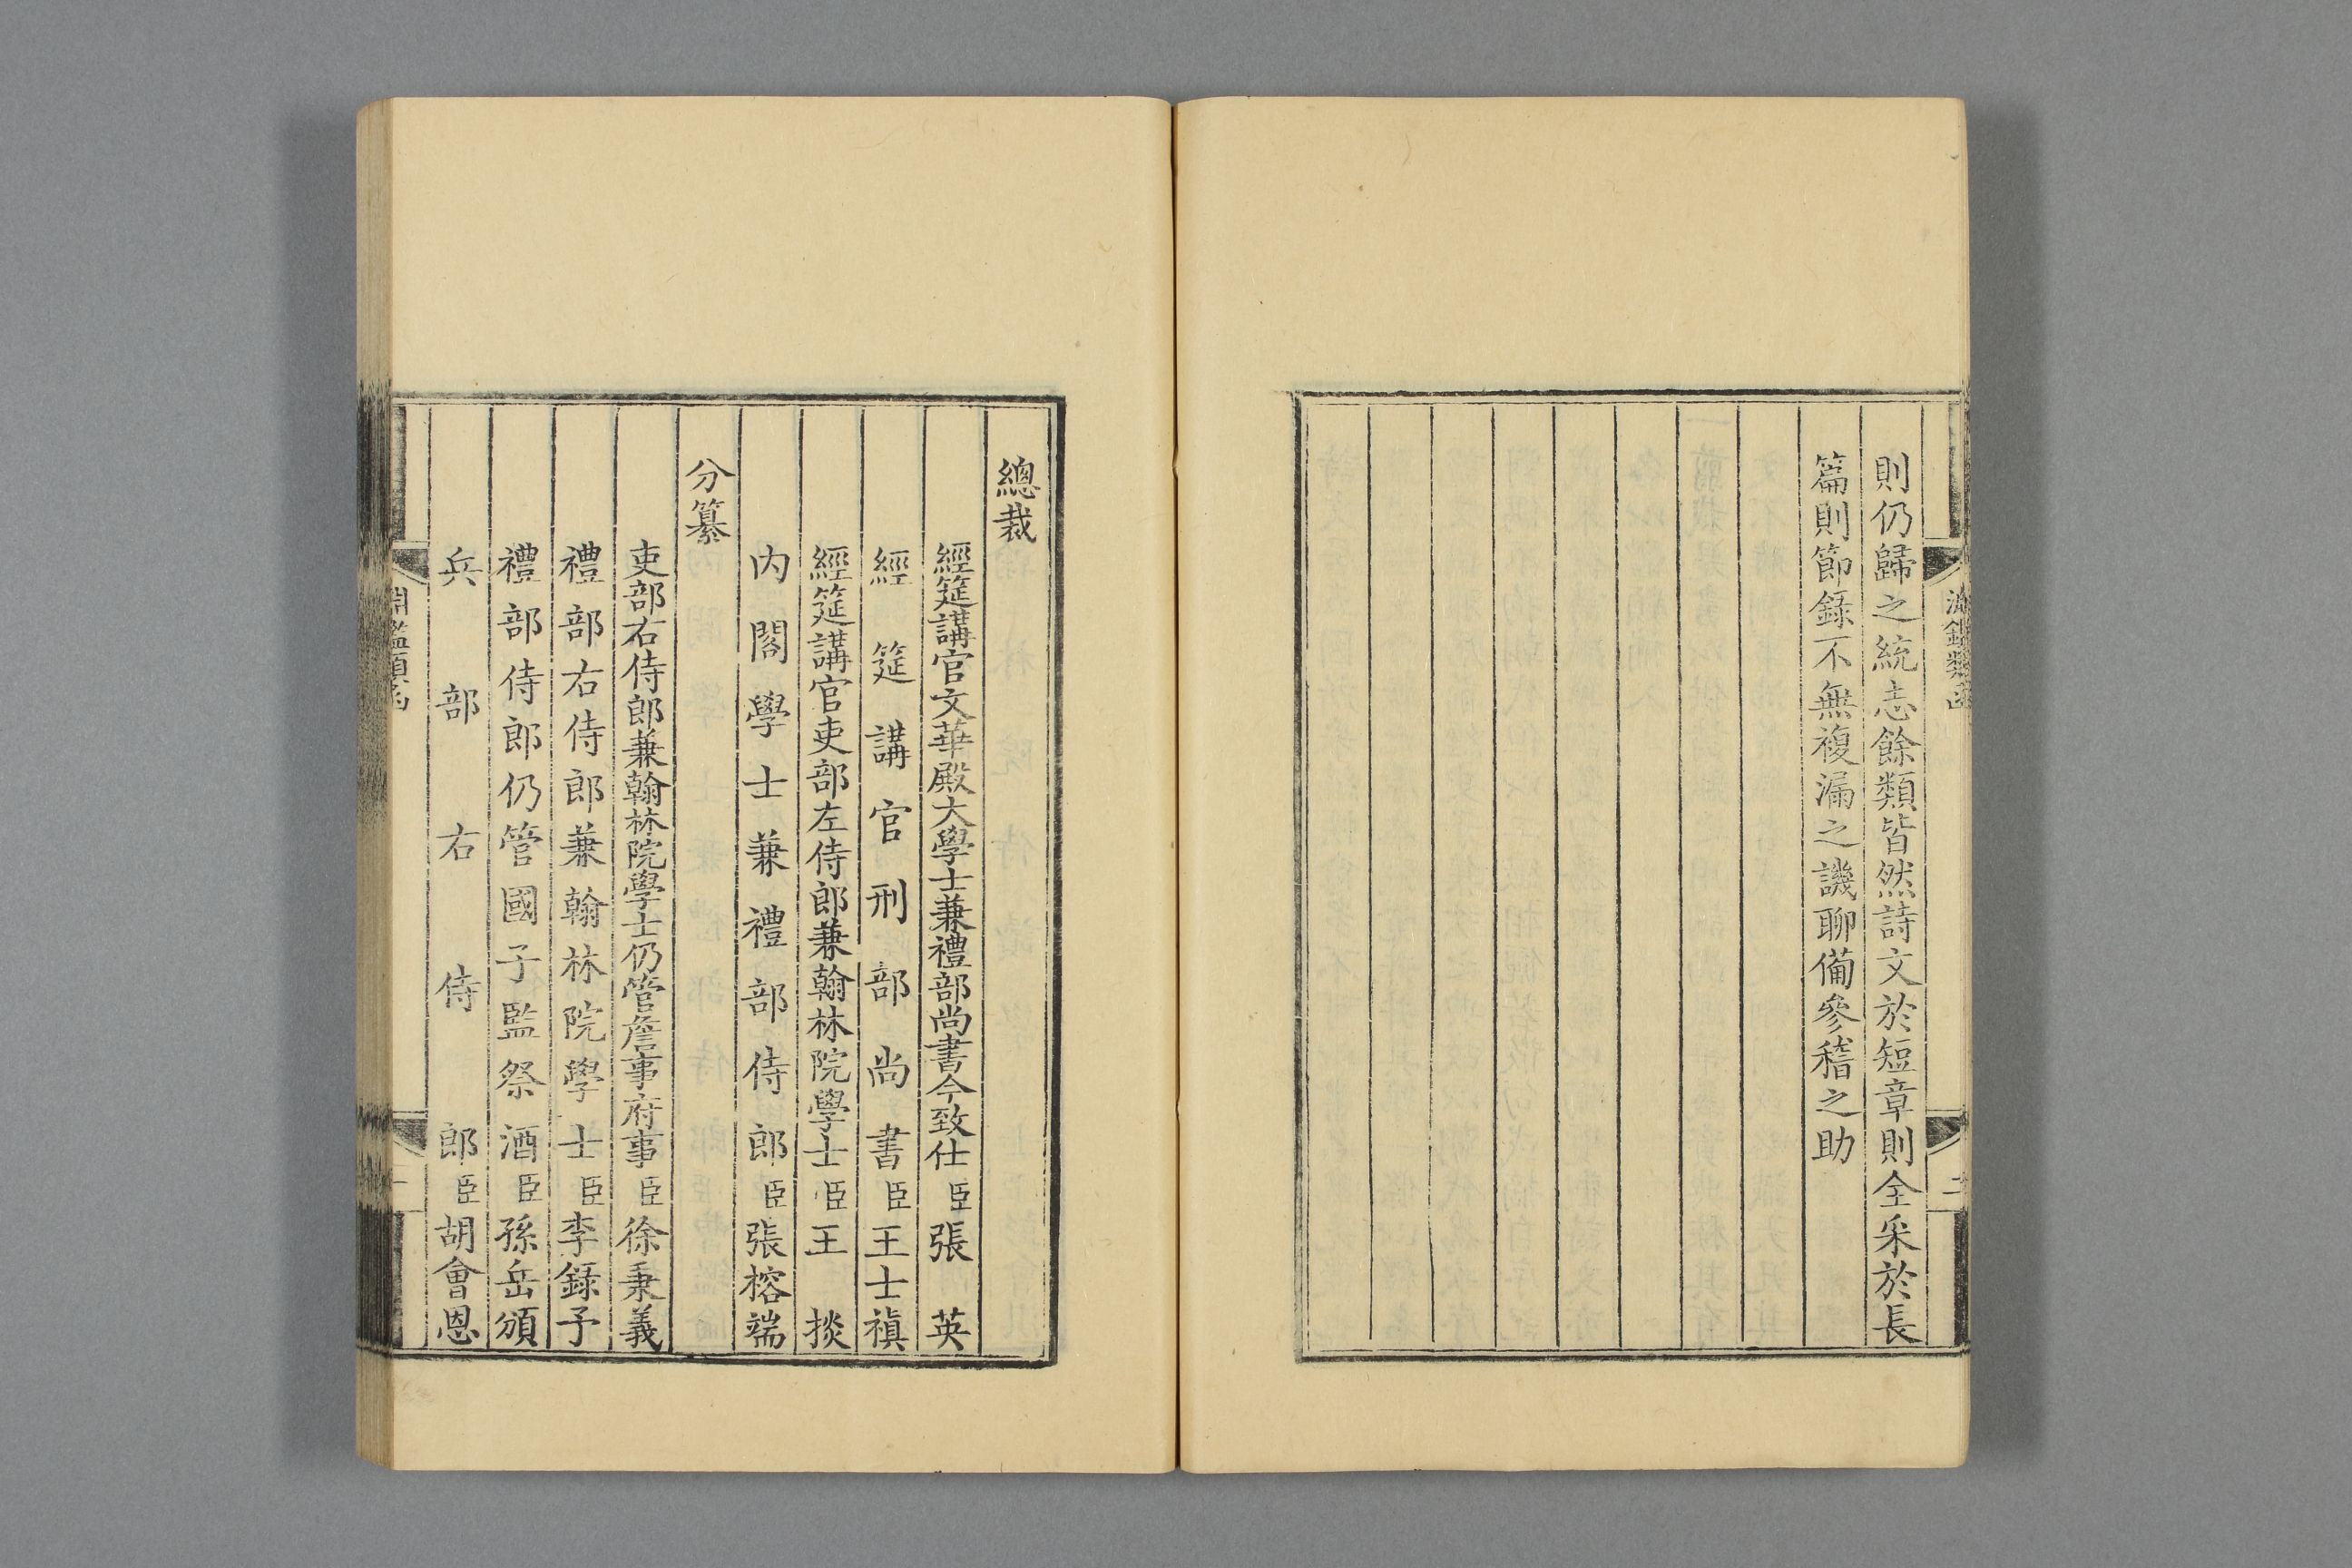 淵鑑類函
二
則仍歸之統志餘類皆然詩文於短章則全采於長
篇則節録不無複漏之譏聊備參稽之助
總裁
經筵講官文華殿大學士兼禮部尚書今致仕臣張英
經筵講官刑部尚書臣王士禛
經筵講官吏部左侍郎兼翰林院學士臣王掞
内閣學士兼禮部侍郎臣張榕端
分纂
吏部右侍郎兼翰林院學士仍管詹事府事臣徐秉義
禮部右侍郎兼翰林院學士臣李録予
禮部侍郎仍管國子監祭酒臣孫岳頒
兵部右侍郎臣胡會恩
淵鑑類函